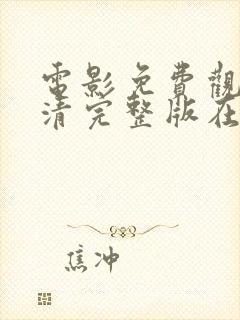 電影免費觀
清完整版在
焦冲